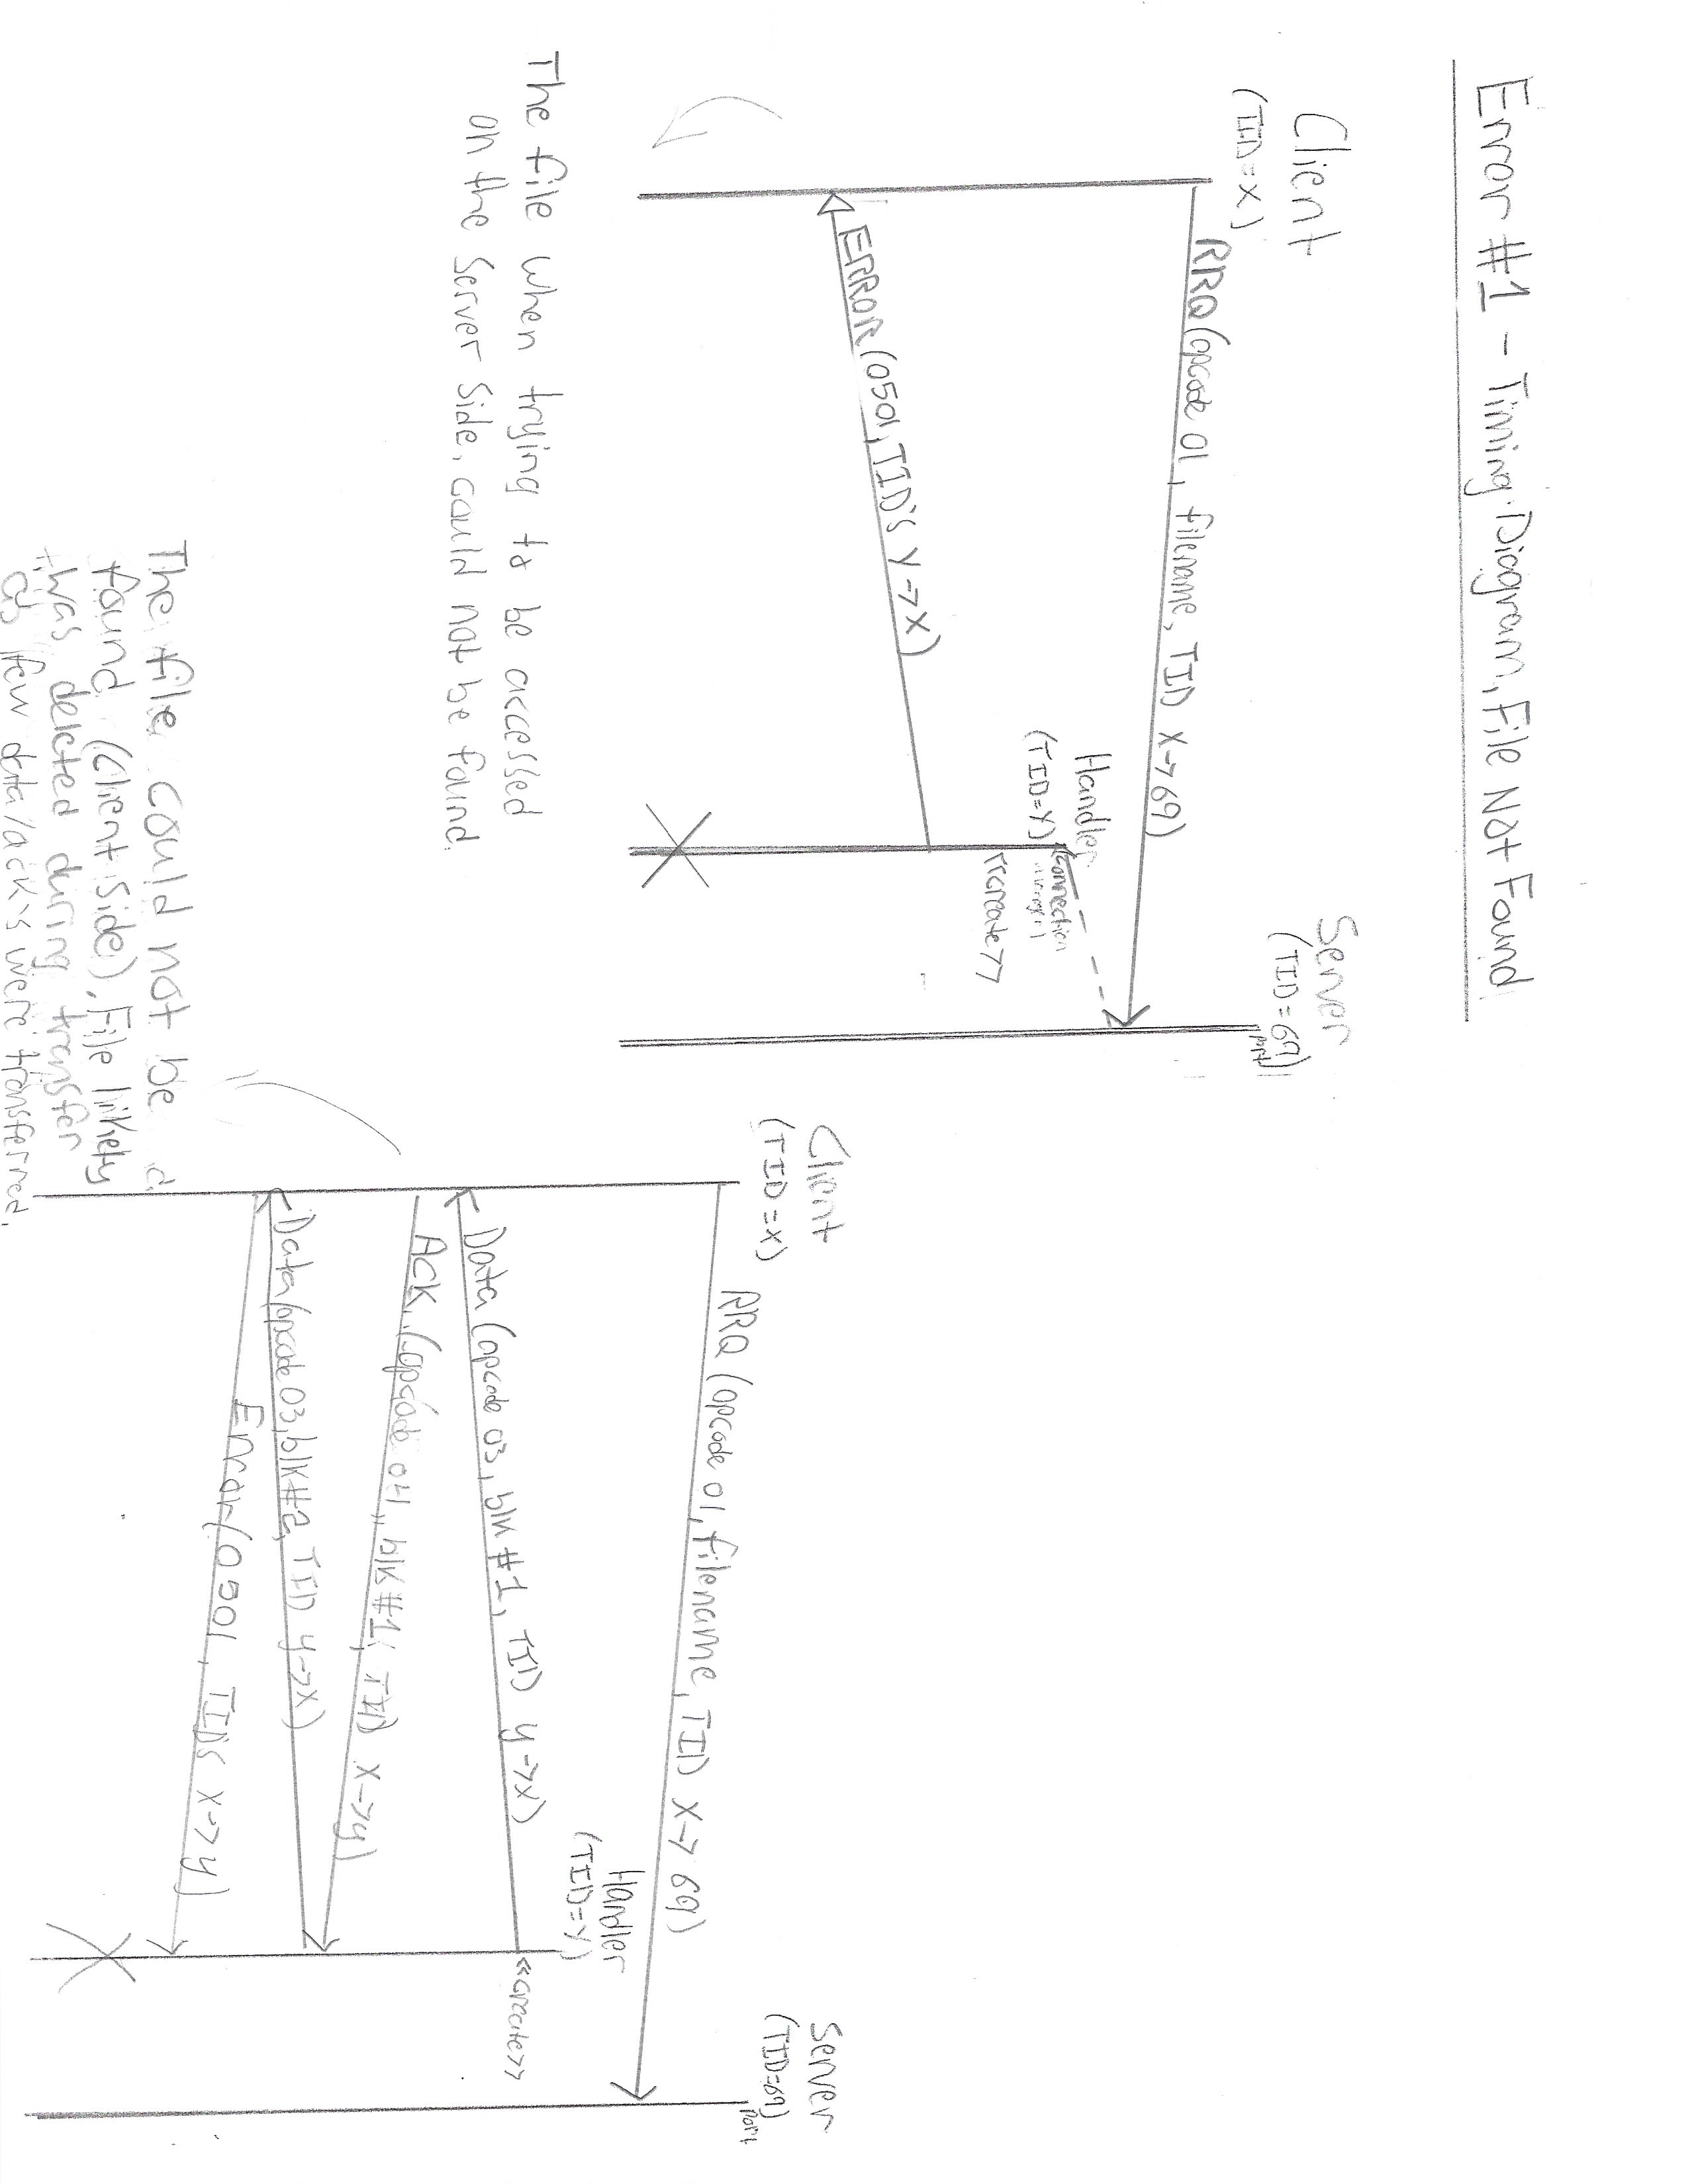 Error #1 - Timing Diagram, File Not Found
Client
(TID=X)
Server
(TID=69)
port
RRQ (opcode 01, filename, TID X->69)
Handler
(TID=Y)
(connection
<<create>>
ERROR (0501, TID's Y->X)
The file when trying to be accessed
on the Server Side, could not be found.
Client
(TID=X)
Server
(TID=69)
port
RRQ (opcode 01, filename, TID X-> 69)
Handler
(TID=Y)
<<create>>
Data (opcode 03, blk #1, TID y->x)
ACK (opcode 04, blk #1, TID X->y)
Data (opcode 03, blk #2, TID y->x)
Error (0501, TIDS X->y)
The file could not be
found (Client Side). File likely
was deleted during transfer
as few data/ack's were transferred.